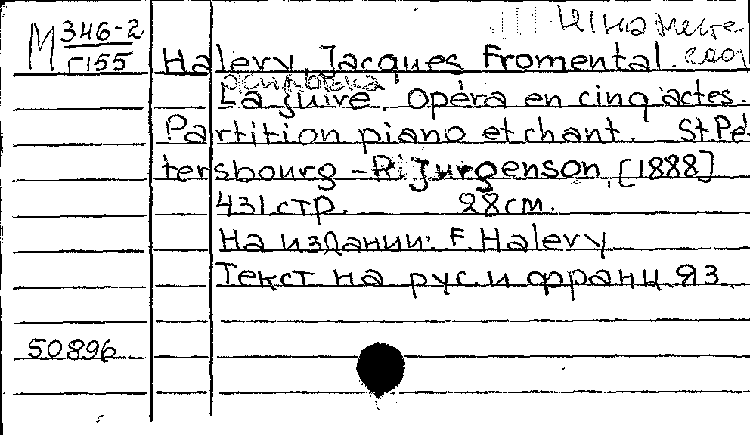 М 346-2
Г155
Halevy, Jacques Fromental
La juive. Opéra en cinq actes.
Partition piano et chant. St.Pé
tersbourg - P. Jurgenson, [1888]
431 стр. 28 см.
На издании: F. Halevy
Текст на рус. и франц. яз.
50896